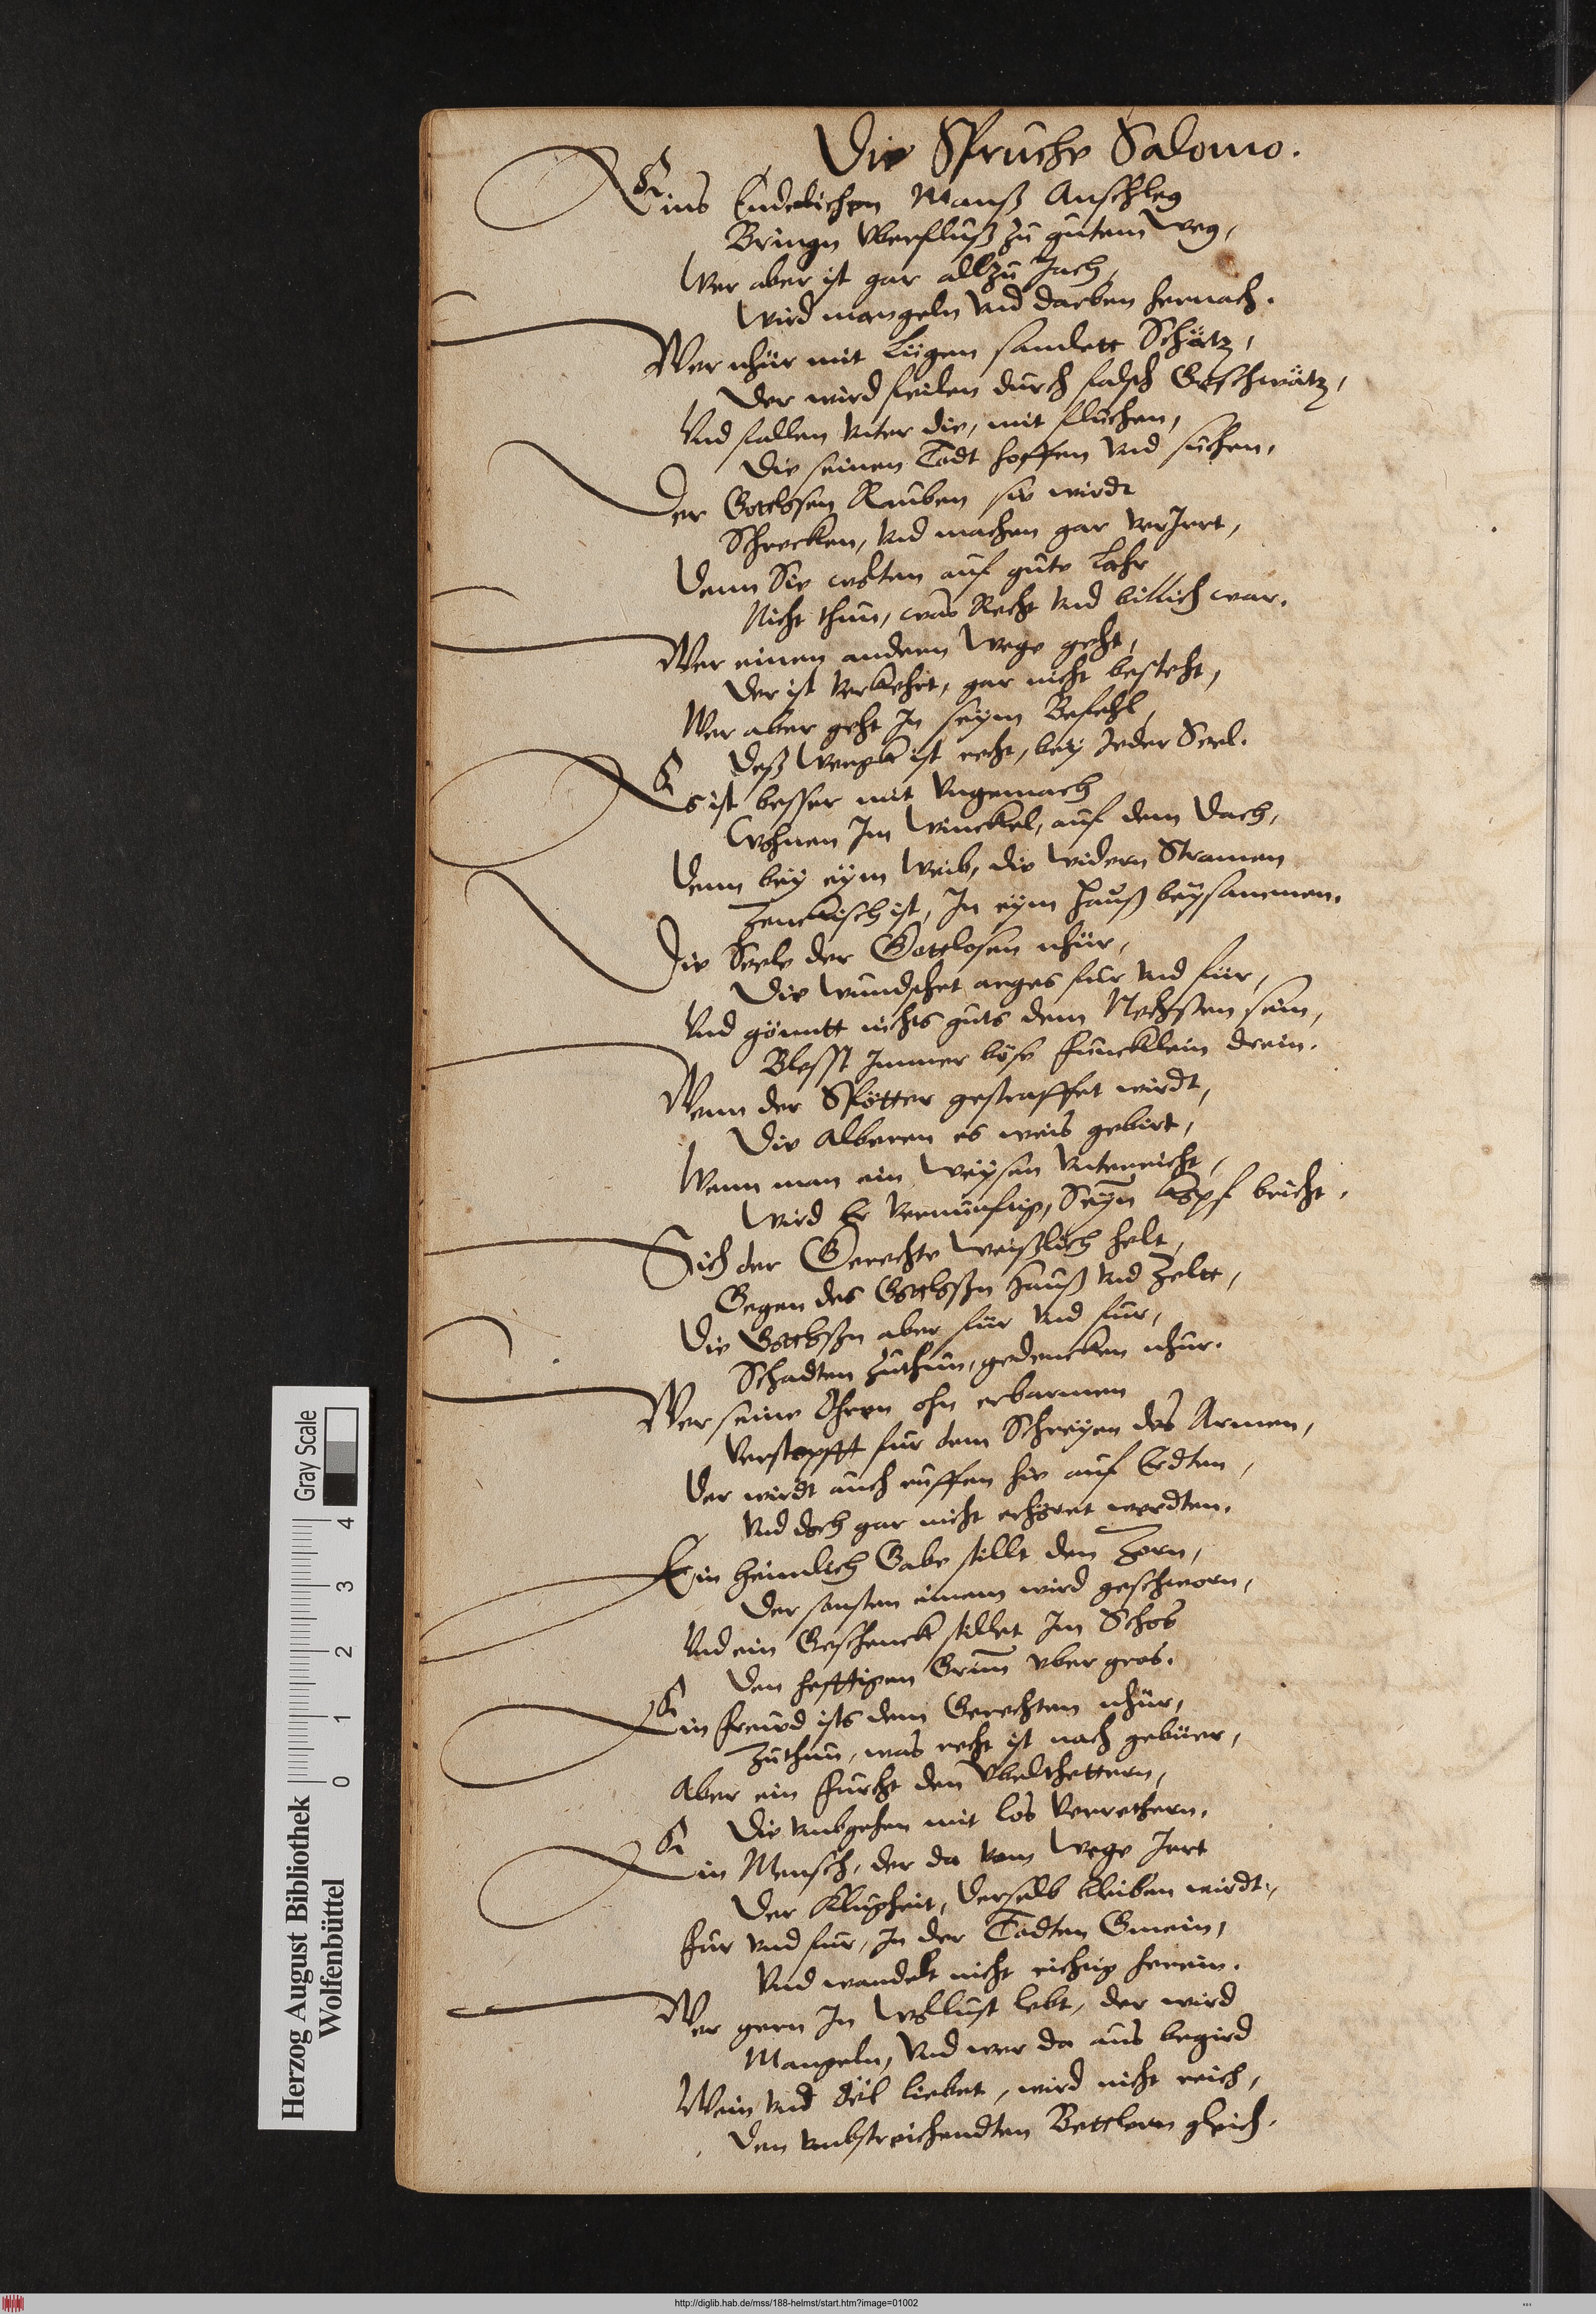 Die Spruche Salomo.
Eins Endelichen Manß Anschleg
Bringn Vberfluß zu gutem Weg,
Wer aber ist gar allzu Jach,
Wird mangeln Vnd darben hernach.
Wer nhür mit Lügen samlett Schätz,
Der wird feilen durch falsch Geschwätz,
Vnd fallen Vnter die, mit fluchen,
Die seinen Todt hoffen Vnd suchen.
Der Gottlosen Rauben sie wirdt
Schrecken, Vnd machen gar verJrrt,
Denn Sie wolten auf gute Lahr
Nicht thun, was Recht Vnd billich war.
Wer einen andern Wege geht,
Der ist Verkehrt, gar nicht besteht,
Wer aber geht In seym Befehl,
Deß Wergk ist recht, bey Jeder Seel.
Es ist besser mit Vngemach
Wohnen Im Winckel, auf dem Dach,
Denn bey eym Weib, die widern Stramen
Zenckisch ist, In eym Hauß beysammen.
Die Seele der Gottlosen nhür,
Die Wundschet arges für Vnd für,
Vnd gönntt nichts guts dem Nechsten sein,
Blesst Immer böse funcklein drein.
Wenn der Spötter gestraffet wirdt,
Die Alberen es weis gebirt,
Wenn man ein Weysen Vnterricht,
Wird Er Vernunftig, Seyn Kopf bricht.
Sich der Gerechte Weißlich helt,
Gegen des Gottloßn Hauß Vnd Zeltt,
Die Gottloßn aber für Vnd fur,
Schadten Zuthun, gedencken nhur.
Wer seine Ohren ohn erbarmen
Verstopfft fur dem Schreyen des Armen,
Der wirdt auch ruffen hie auf Erdten,
Vnd doch gar nicht erhöret werdten.
Ein heimlich Gabe stillt den Zorn,
Der sonsten einem wird geschworn,
Vnd ein Geschenck stillet Im Schos
Den hefftigen Grim̄ vber gros.
Ein freud ists dem Gerechten nhür,
Zuthun, was recht ist nach gebüer,
Aber ein furcht den Vbelthettern,
Die vmbgehen mit los Verrethern.
Ein Mensch, der da vom Wege Irrt
Der Klugheit, Derselb bleiben wirdt,
Fur vnd fur, In der Todten Gmein,
Vnd wandelt nicht richtig herein.
Wer gern In Wollust lebt, der wird
Mangeln, Vnd wer da aus begird
Wein Vnd Oel liebet, wird nicht reich,
Den vmbstreichendten Bettlern gleich.
Herzog August Bibliothek
Wolfenbüttel
0 1 2 3 4
Gray Scale
http://diglib.hab.de/mss/188-helmst/start.htm?image=01002